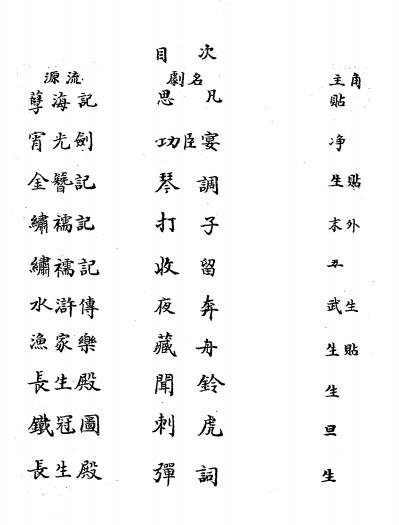 目次
源流 劇名 主角
孽海記 思凡 貼
宵光劍 功臣宴 净
金簪記 琴調 生貼
繡襦記 打子 末外
繡襦記 收留 丑
水滸傳 夜奔 武生
漁家樂 藏舟 生貼
長生殿 聞鈴 生
鐵冠圖 刺虎 旦
長生殿 彈詞 生